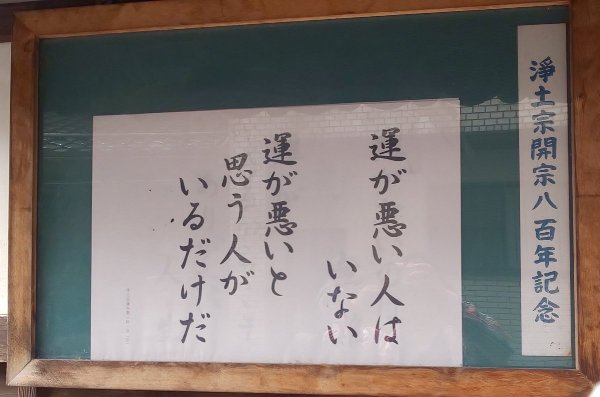 浄土宗開宗八百年記念
運が悪い人は
いない
運が悪いと
思う人が
いるだけだ